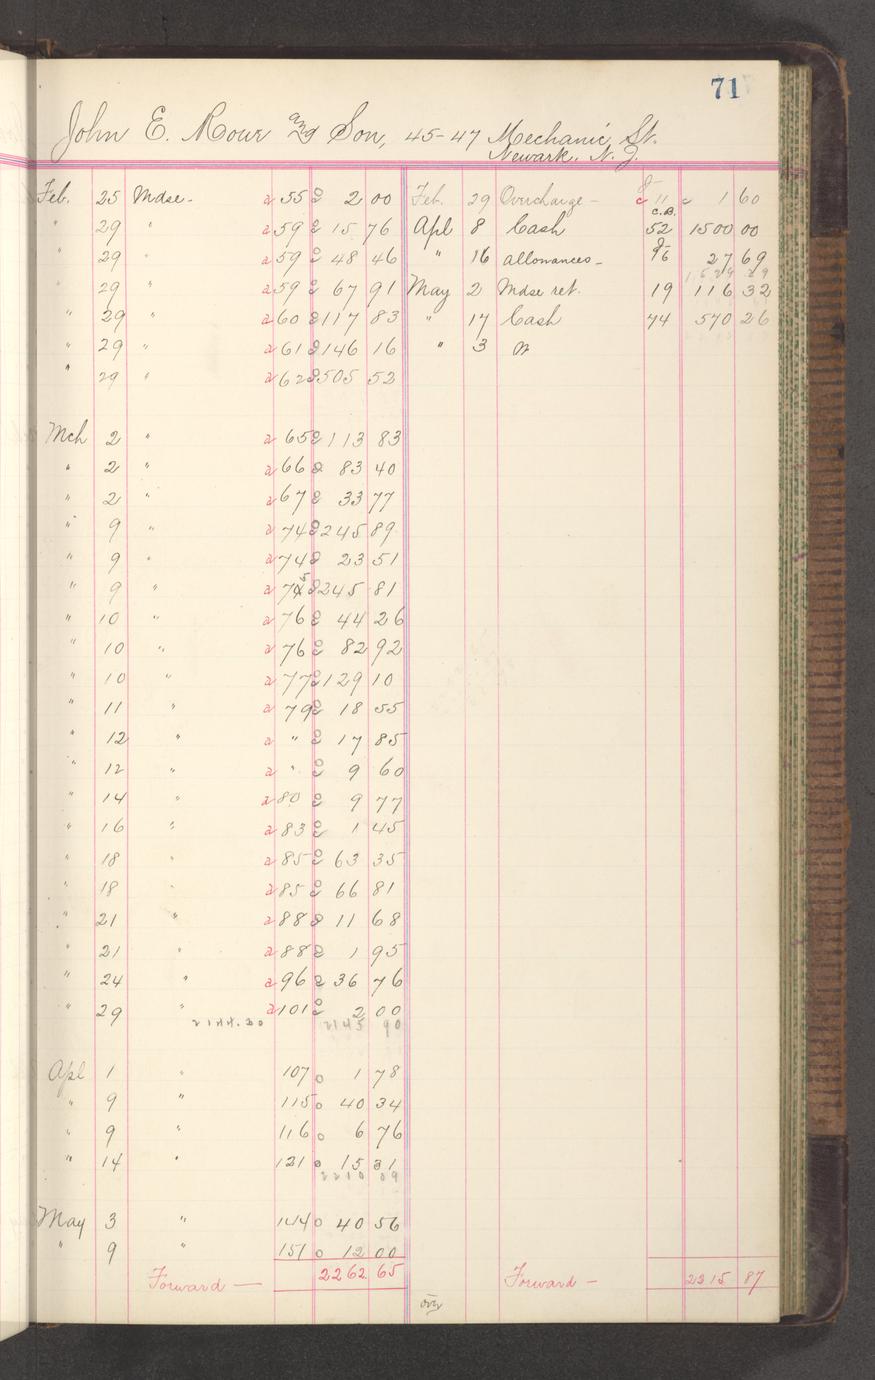 71
John E. Rour and Son, 45-47 Mechanic St.
Newark, N. J.
Feb. 25 Mdse. a 55 2 00 Feb. 29 Overcharge - c 11 1 60
" 29 " a 59 15 76 Apl 8 Cash C.B. 52 1500 00
" 29 " a 59 48 46 " 16 allowances - 96 27 69
1529 29
" 29 " a 59 67 91 May 2 Mdse ret. 19 116 32
" 29 " a 60 117 83 " 17 Cash 74 570 26
" 29 " a 61 146 16 " 3
" 29 " a 62 505 52
Mch 2 " a 65 113 83
" 2 " a 66 83 40
" 2 " a 67 33 77
" 9 " a 74 245 89
" 9 " a 74 23 51
" 9 " a 75 245 81
" 10 " a 76 44 26
" 10 " a 76 82 92
" 10 " a 77 129 10
" 11 " a 79 18 55
" 12 " a " 17 85
" 12 " a " 9 60
" 14 " a 80 9 77
" 16 " a 83 1 45
" 18 " a 85 63 35
" 18 " a 85 66 81
" 21 " a 88 11 68
" 21 " a 88 1 95
" 24 " a 96 36 76
" 29 " a 101 2 00
2144.30 2145 90
Apl 1 " 107 1 78
" 9 " 115 40 34
" 9 " 116 6 76
" 14 " 121 15 31
2210 09
May 3 " 144 40 56
" 9 " 151 12 00
Forward - 2262 65 Forward - 2215 87
over